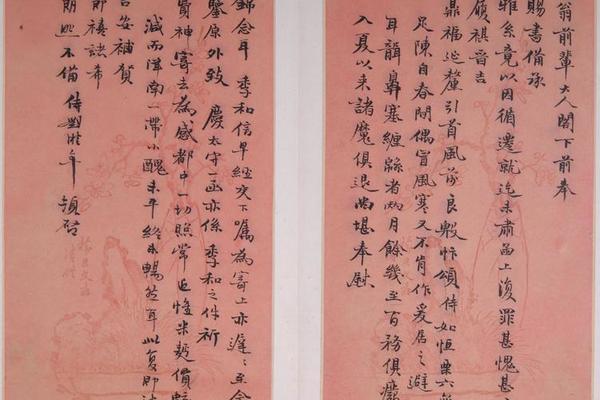 翁前輩大人閣下前奉
賜書備承
雅系竟以因循遷就迄未肅函上復罪甚愧甚
履祺晉吉
鼎福延釐引首風采良殷忭頌侍如恒栗六無
足陳自春間偶冒風寒又不肯作爰居之避
耳聾鼻塞纏綿者兩月餘幾至百務俱癈
入夏以來諸魔俱退尚堪奉慰
錦念耳季和信早經交下囑為寄上亦遲遲至今
鑒原外致慶太守一函亦係季和之件祈
費神寄去為感都中一切照常近惟米麪價
減而淮南一帶小醜未平終未暢茲耳此復即
台安補賀
即禧諸希
朗照不備侍年頓啓